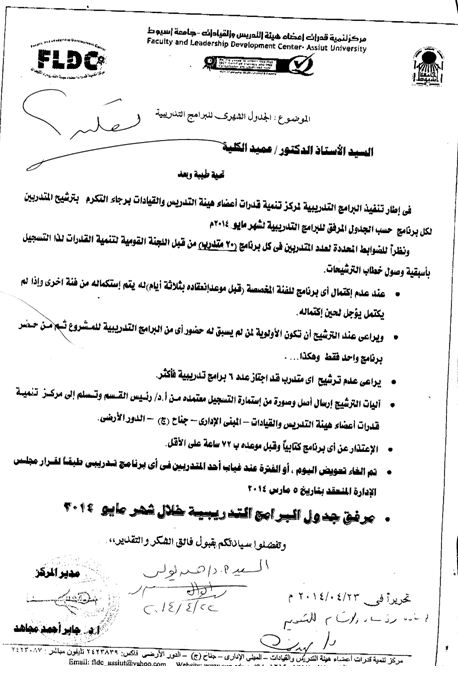 مركز تنمية قدرات أعضاء هيئة التدريس والقيادات - جامعة أسيوط
Faculty and Leadership Development Center- Assiut University
FLDC
الموضوع : الجدول الشهرى للبرامج التدريبية
السيد الأستاذ الدكتور / عميد الكلية
تحية طيبة وبعد
فى إطار تنفيذ البرامج التدريبية لمركز تنمية قدرات أعضاء هيئة التدريس والقيادات برجاء التكرم بترشيح المتدربين
لكل برنامج حسب الجدول المرفق للبرامج التدريبية لشهر مايو ٢٠١٤م
ونظراً للضوابط المحددة لعدد المتدربين فى كل برنامج (٢٠ متدرب) من قبل اللجنة القومية لتنمية القدرات لذا التسجيل
بأسبقية وصول خطاب الترشيحات.
• عند عدم إكتمال أى برنامج للفئة المخصصة (قبل موعد إنعقاده بثلاثة أيام) له يتم إستكماله من فئة اخرى وإذا لم
يكتمل يؤجل لحين إكتماله.
• ويراعى عند الترشيح أن تكون الأولوية لمن لم يسبق له حضور أى من البرامج التدريبية للمشروع ثم من حضر
برنامج واحد فقط وهكذا... .
• يراعى عدم ترشيح اى متدرب قد اجتاز عدد ٦ برامج تدريبية فأكثر.
• آليات الترشيح إرسال أصل وصورة من إستمارة التسجيل معتمده من أ.د/ رئيس القسم وتسلم إلى مركز تنمية
قدرات أعضاء هيئة التدريس والقيادات - المبنى الإدارى - جناح (ج) - الدور الأرضى.
• الإعتذار عن أى برنامج كتابياً وقبل موعده ب ٧٢ ساعة على الأقل.
• تم الغاء تعويض اليوم ، أو الفترة عند غياب أحد المتدربين فى أى برنامج تدريبى طبقاً لقرار مجلس
الإدارة المنعقد بتاريخ ٥ مارس ٢٠١٤
• مرفق جدول البرامج التدريبية خلال شهر مايو ٢٠١٤
وتفضلوا سيادتكم بقبول فائق الشكر والتقدير،،،
مدير المركز
٢٠١٤/٤/٢٢
تحريراً فى ٢٠١٤/٠٤/٢٣ م
أ.د. جابر أحمد مجاهد
مركز تنمية قدرات أعضاء هيئة التدريس والقيادات - المبنى الإدارى - جناح (ج) - الدور الأرضى فاكس: ٢٤٢٣٨٣٩ تليفون مباشر : ٢٤٢٣٠٨٧
Email: fldc_assiut@yahoo.com